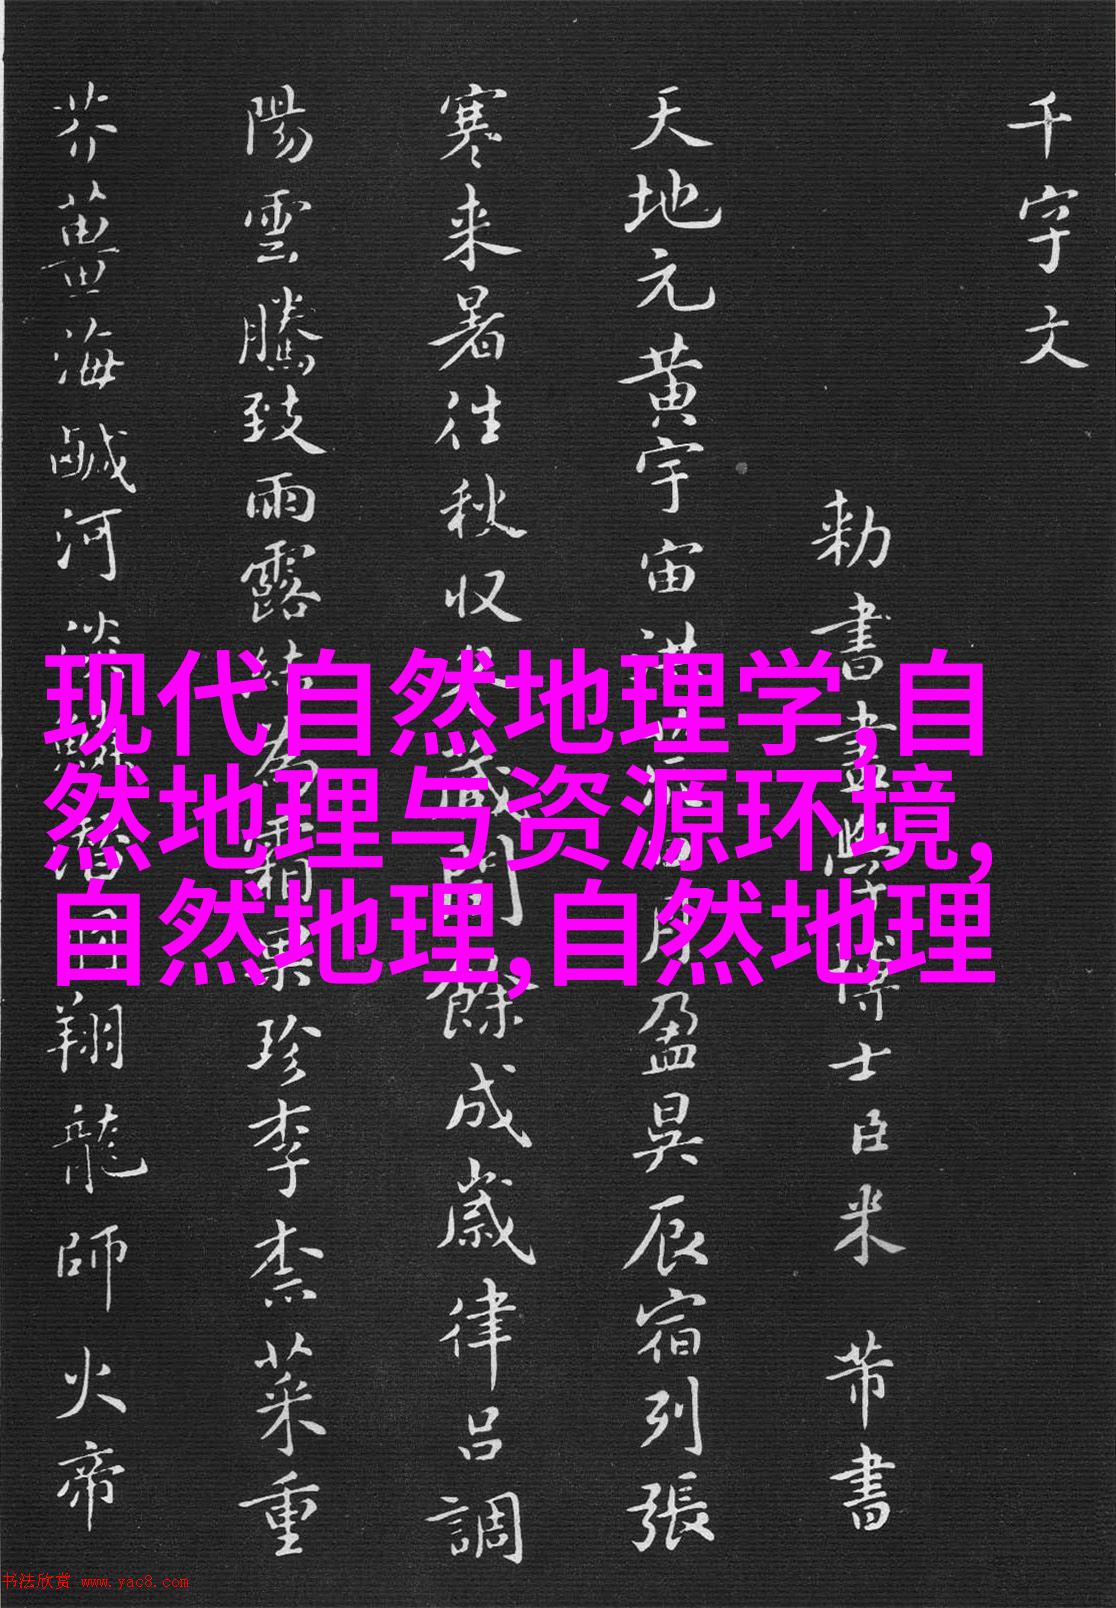 千字文
勅書畫學博士臣米芾書
天地元黄宇宙洪荒日月盈昃辰宿列張
寒来暑往秋収冬藏閏餘成歲律呂調
陽雲騰致雨露結為霜果珍李柰菜重
芥薑海鹹河淡鱗潛羽翔龍師火帝
现代自然地理学,自
然地理与资源环境,
自然地理,自然地理
书法欣赏 www.yac8.com